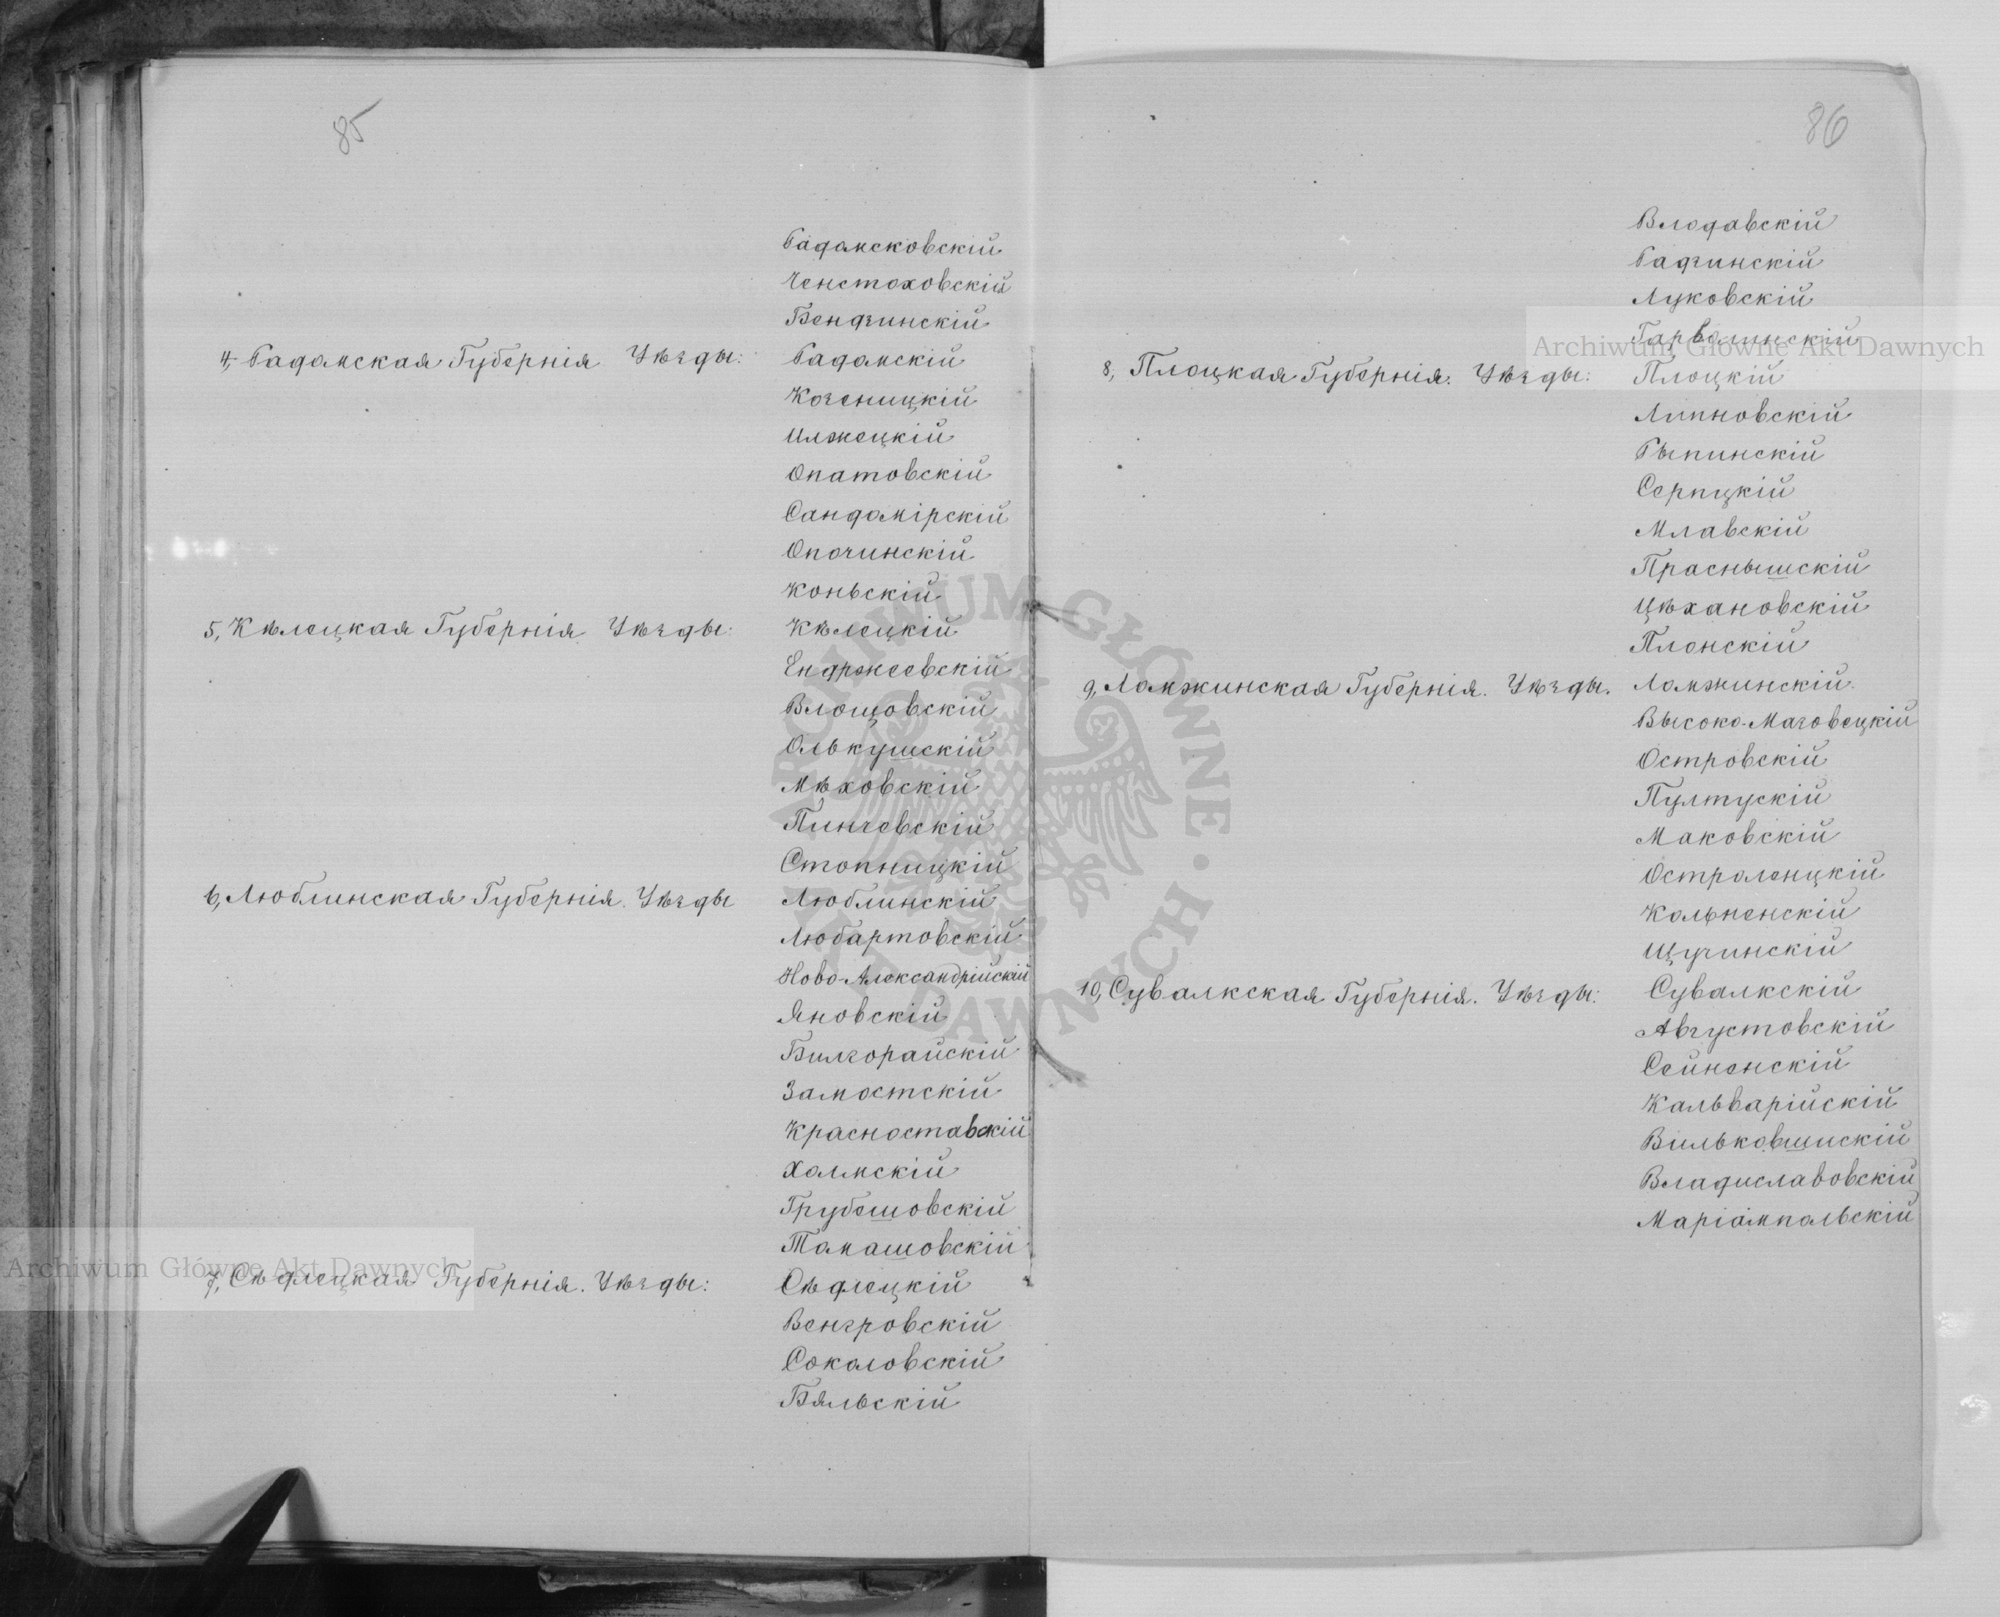 85
Радомсковскій
Ченстоховскій
Бендинскій
4, Радомская Губернія Уѣзды: Радомскій
Козеницкій
Илжецкій
Опатовскій
Сандомірскій
Опочинскій
Коньскій
5, Кѣлецкая Губернія Уѣзды: Кѣлецкій
Ендржеевскій
Влощовскій
Олькушскій
Мѣховскій
Пинчовскій
Стопницкій
6, Люблинская Губернія. Уѣзды Люблинскій
Любартовскій
Ново-Александрійскій
Яновскій
Билгорайскій
Замостскій
Красноставскій
Холмскій
Грубешовскій
Томашовскій
7, Сѣдлецкая Губернія. Уѣзды: Сѣдлецкій
Венгровскій
Соколовскій
Бяльскій
86
Влодавскій
Радзинскій
Луковскій
Гарволинскій
8, Плоцкая Губернія. Уѣзды: Плоцкій
Липновскій
Рыпинскій
Серпцкій
Млавскій
Праснышскій
Цѣхановскій
Плонскій
9, Ломжинская Губернія. Уѣзды. Ломжинскій
Высоко-Мазовецкій
Островскій
Пултускій
Маковскій
Остроленцкій
Кольненскій
Щучинскій
10, Сувалкская Губернія. Уѣзды: Сувалкскій
Августовскій
Сейненскій
Кальварійскій
Вильковшискій
Владиславовскій
Маріампольскій
Archiwum Główne Akt Dawnych
Archiwum Główne Akt Dawnych
ARCHIWUM GŁÓWNE AKT DAWNYCH